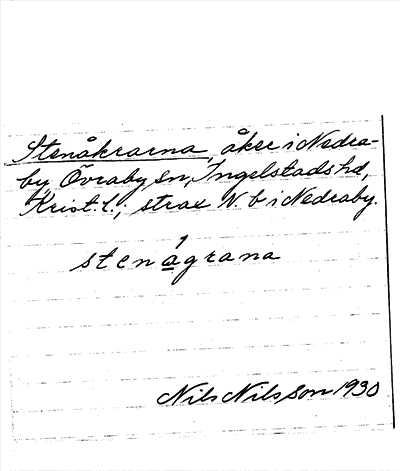 Stenåkrarna, åker i Nedra-
by, Övraby sn, Ingelstads hd,
Krist. l., strax N. b i Nedraby.
stenagrana
Nils Nilsson 1930